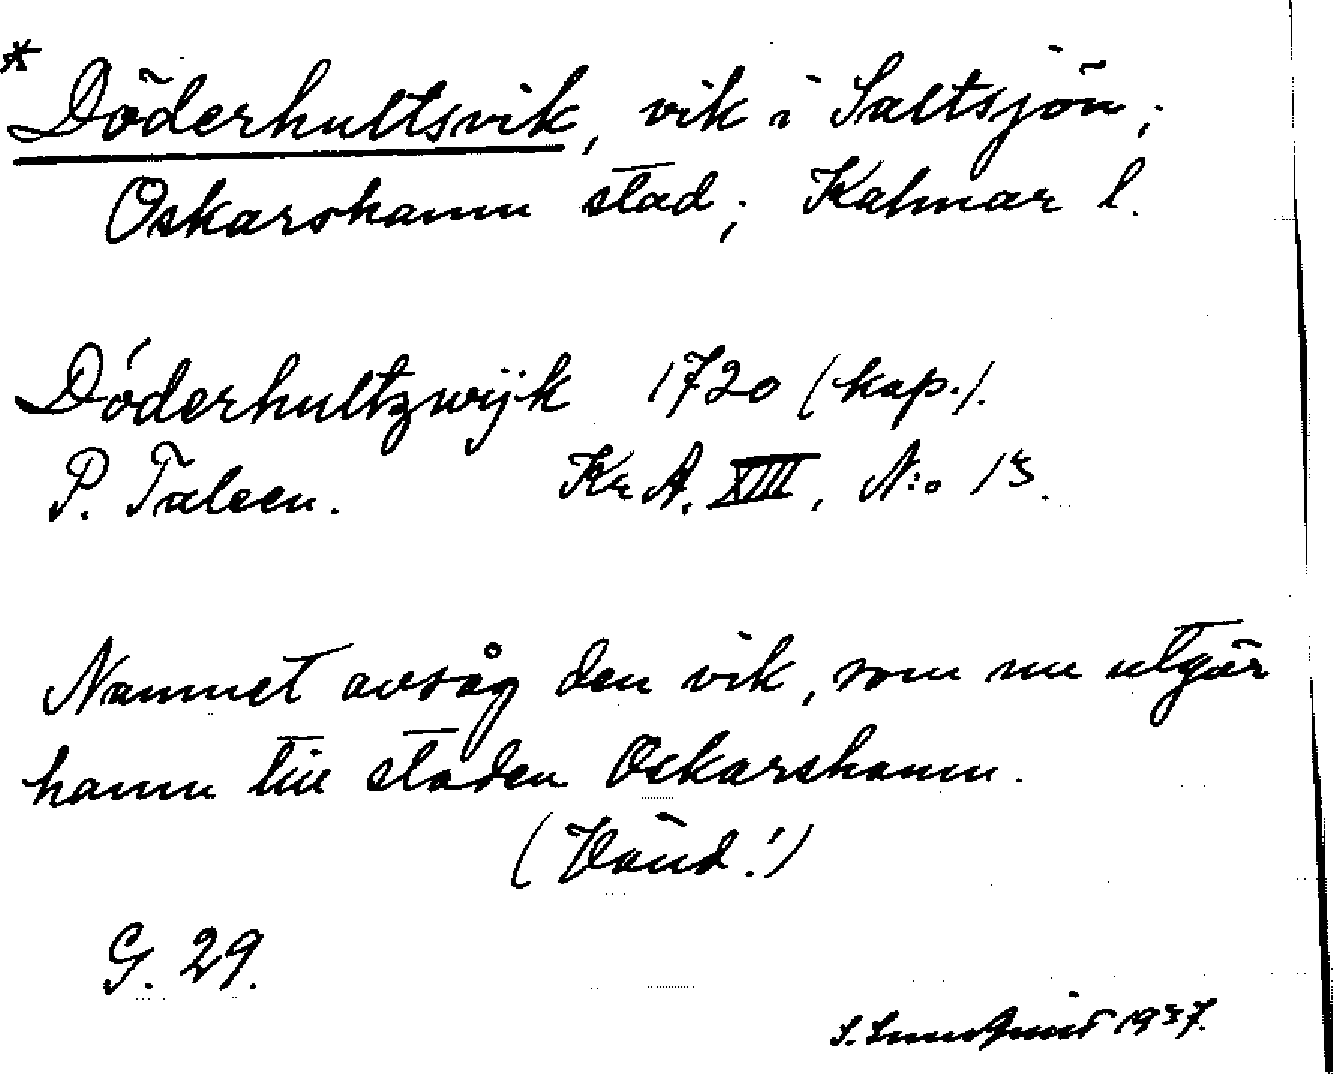 * Döderhultsvik, vik i Saltsjön;
Oskarshamn stad; Kalmar l.
Döderhultzwijk 1720 (kap.).
P. Taleen. Kr A. XIII, N:o 13.
Namnet avsåg den vik, som nu utgör
hamn till staden Oskarshamn.
(Vänd!)
G. 29.
S. 1937.